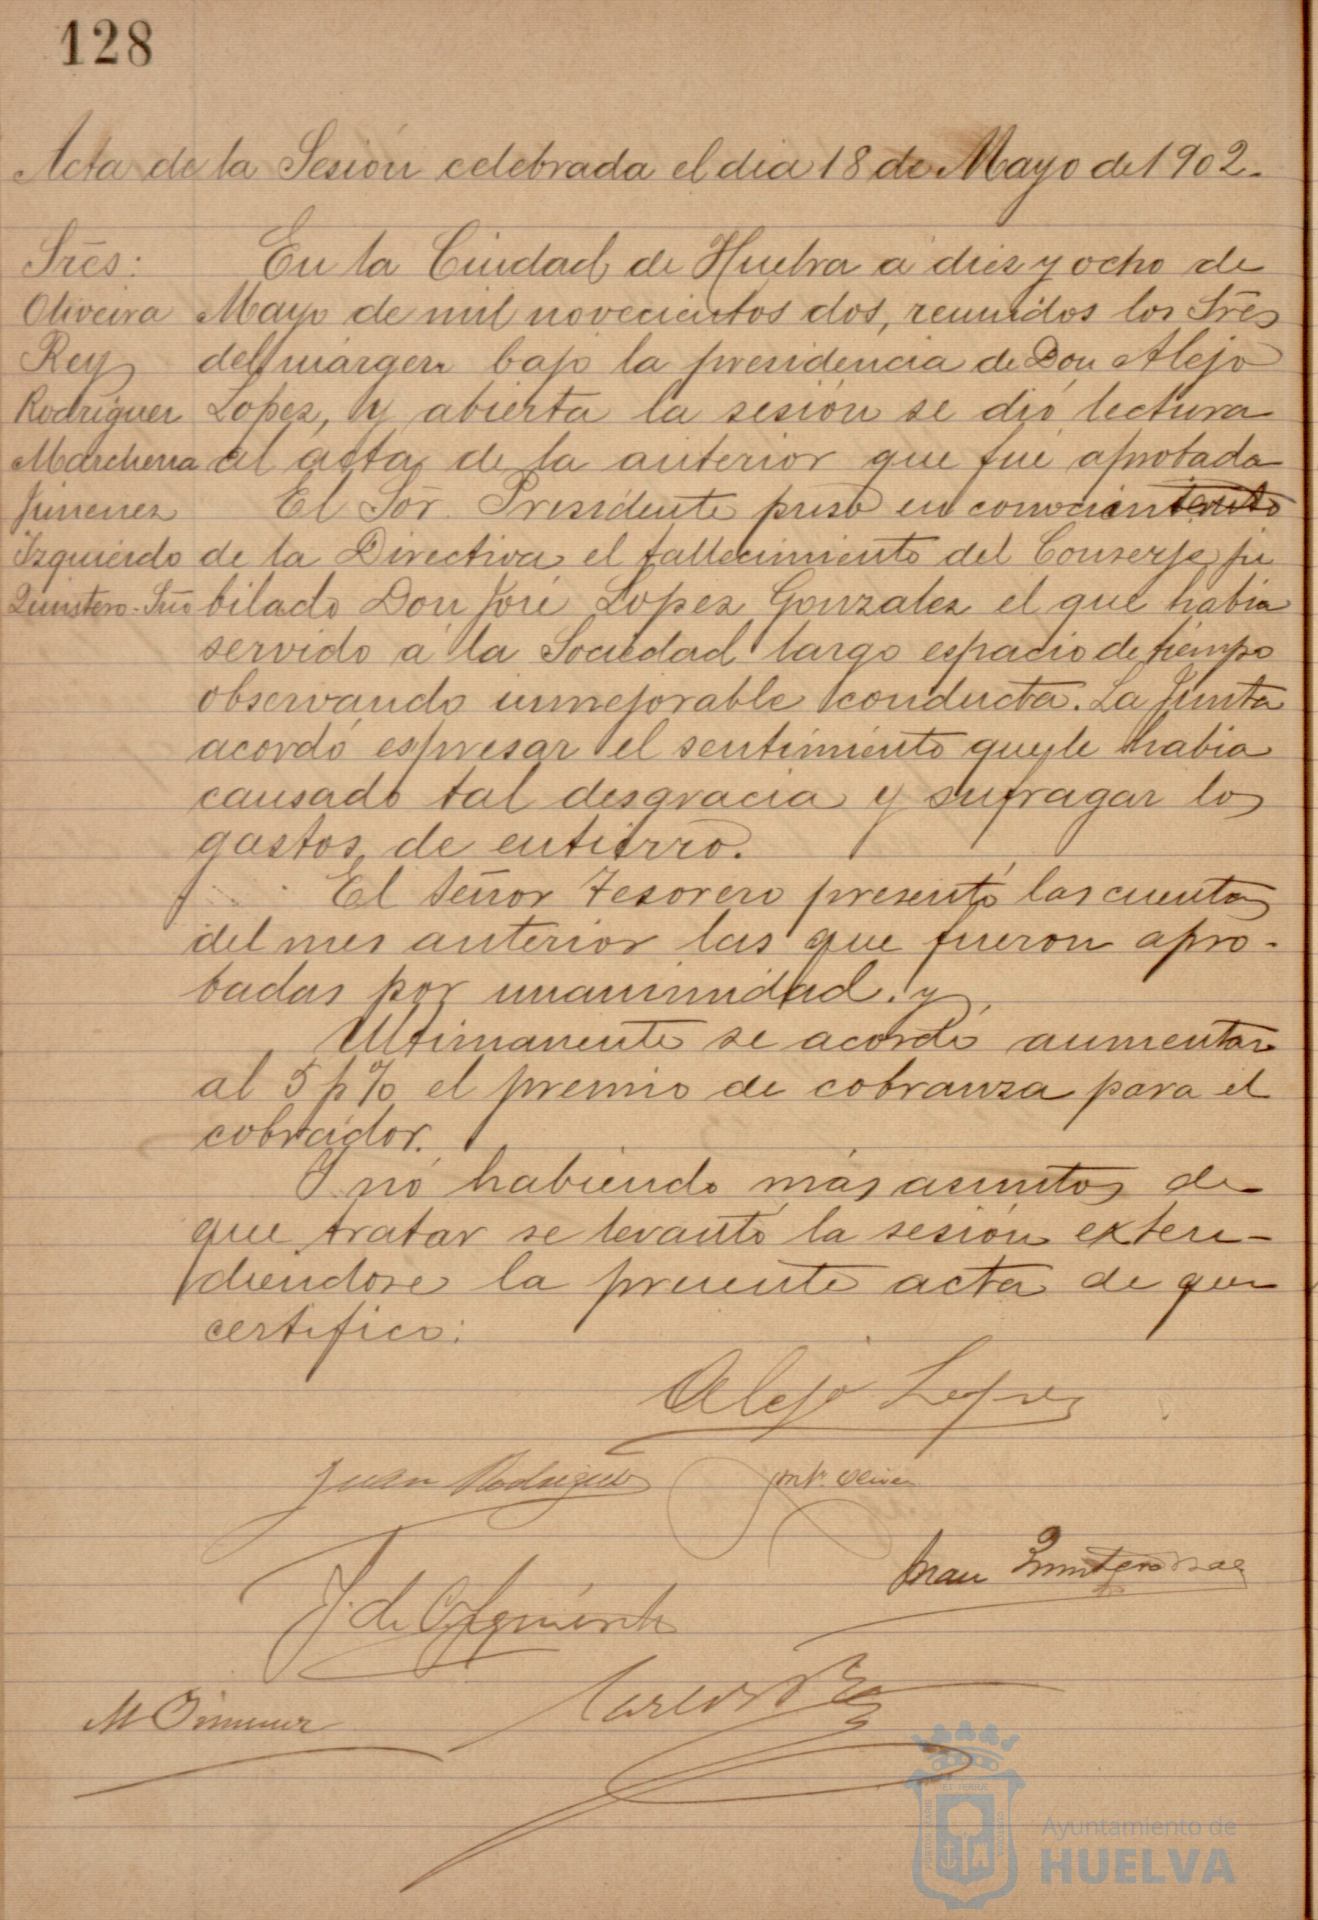 128
Acta de la Sesión celebrada el dia 18 de Mayo de 1902.
Sres:
Oliveira
Rey
Rodriguez
Marchena
Jimenez
Izquierdo
Quintero-Srio
En la Ciudad de Huelva a diez y ocho de
Mayo de mil novecientos dos, reunidos los Sres
del márgen bajo la presidencia de Don Alejo
Lopez, y abierta la sesión se dió lectura
al acta de la anterior que fué aprobada
El Sor. Presidente puso en conocimiento
de la Directiva el fallecimiento del Conserje ju
bilado Don José Lopez Gonzalez el que habia
servido á la Sociedad largo espacio de tiempo
observando inmejorable conducta. La Junta
acordó espresar el sentimiento que le habia
causado tal desgracia y sufragar los
gastos de entierro.
El Señor Tesorero presentó las cuentas
del mes anterior las que fueron apro-
badas por unanimidad. y
Ultimamente se acordó aumentar
al 5 p% el premio de cobranza para el
cobrador.
Y nó habiendo más asuntos de
que tratar se levantó la sesión exten-
diendose la presente acta de que
certifico:
Alejo Lopez
Juan Rodriguez
J. de Izquierdo
Juan Quintero
M Jimenez
Carlos Rey
PORTUS MARIS
ET TERRÆ
CUSTODIA
Ayuntamiento de
HUELVA